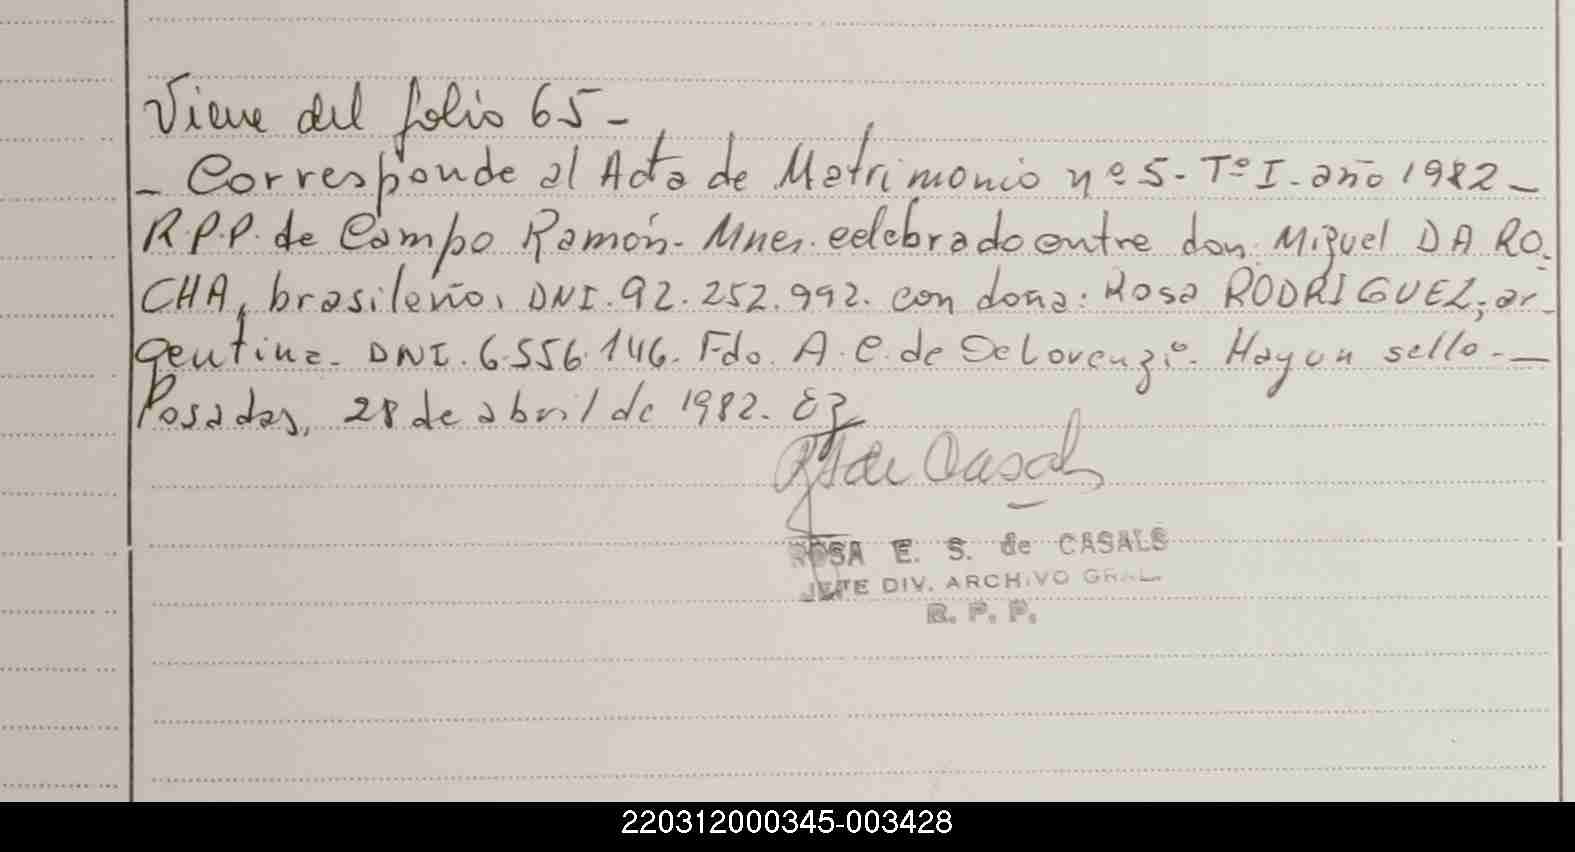 Viene del folio 65-
- Corresponde al Acta de Matrimonio nº 5- Tº I- año 1982-
R.P.P. de Campo Ramón- Mnes. celebrado entre don: Miguel DA RO-
CHA, brasileño, DNI. 92.252.992. con doña: Rosa RODRIGUEZ, ar-
gentina- DNI. 6.556.146. Fdo. A. C. de De Lorenzi. Hay un sello.-
Posadas, 28 de abril de 1982.
de Casals
ROSA E. S. de CASALS
JEFE DIV. ARCHIVO GRAL.
R. P. P.
220312000345-003428